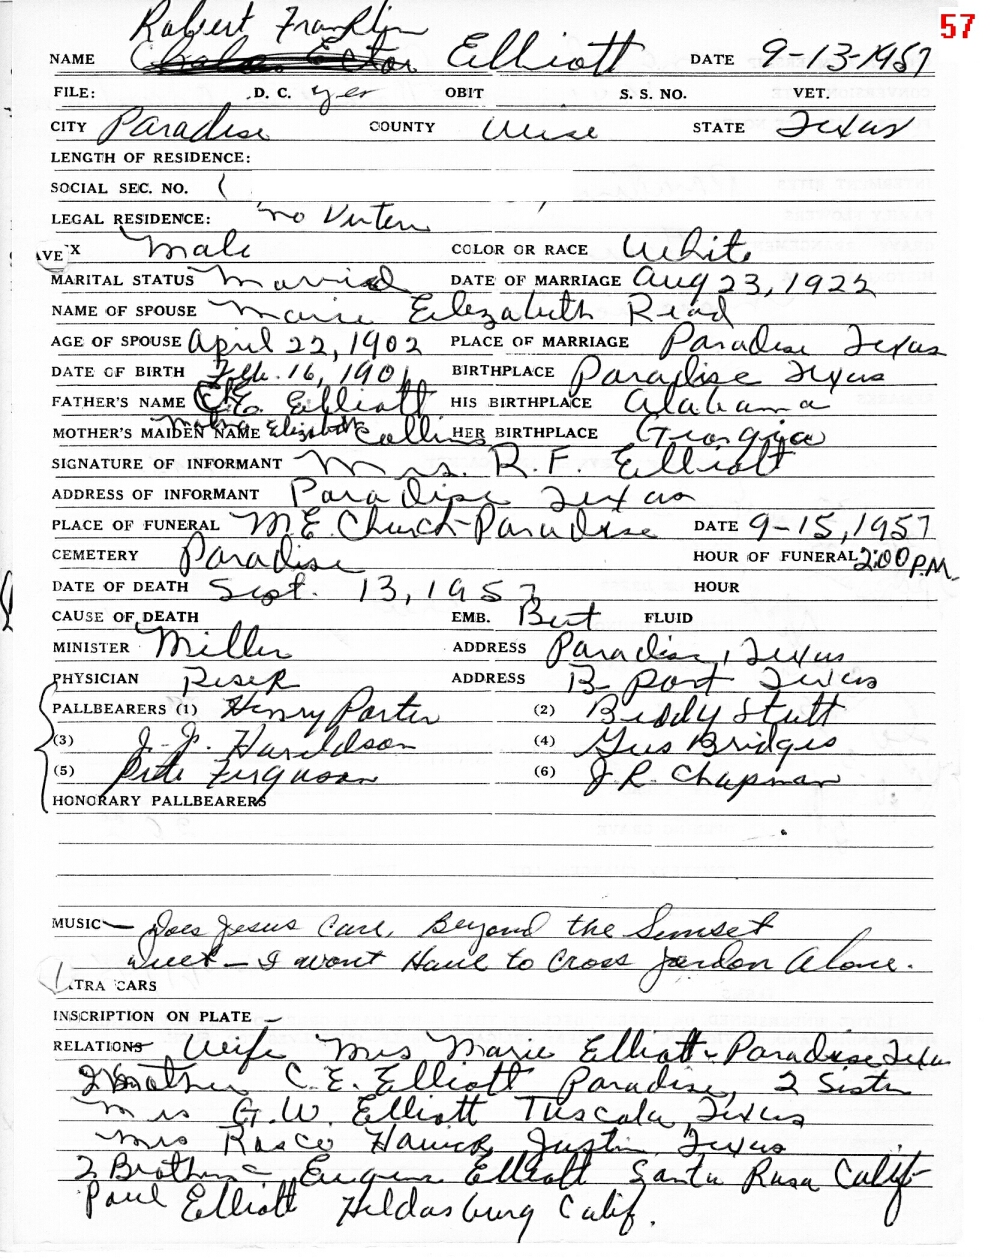 57
Robert Franklin
NAME Elliott DATE 9-13-1957
FILE: D. C. yes OBIT S. S. NO. VET.
CITY Paradise COUNTY Wise STATE Texas
LENGTH OF RESIDENCE:
SOCIAL SEC. NO. (
LEGAL RESIDENCE: no
AVE X Male COLOR OR RACE White
MARITAL STATUS Married DATE OF MARRIAGE Aug 23, 1922
NAME OF SPOUSE Marie Elizabeth Read
AGE OF SPOUSE April 22, 1902 PLACE OF MARRIAGE Paradise Texas
DATE OF BIRTH Feb. 16, 1901 BIRTHPLACE Paradise Texas
FATHER'S NAME C.E. Elliott HIS BIRTHPLACE Alabama
MOTHER'S MAIDEN NAME Elizabeth Collins HER BIRTHPLACE Georgia
SIGNATURE OF INFORMANT Mrs. R.F Elliott
ADDRESS OF INFORMANT Paradise Texas
PLACE OF FUNERAL M.E. Church-Paradise DATE 9-15, 1957
CEMETERY Paradise HOUR OF FUNERAL 2:00 P.M.
DATE OF DEATH Sept. 13, 1957 HOUR
CAUSE OF DEATH EMB. Burt FLUID
MINISTER Miller ADDRESS Paradise, Texas
PHYSICIAN ADDRESS B port Texas
PALLBEARERS (1) Henry Porter (2) Buddy Stutt
(3) J. J. (4) Gus Bridges
(5) Pete Ferguson (6) J.R. Chapman
HONORARY PALLBEARERS
MUSIC — Does Jesus Care, Beyond the Sunset
Duet — I wont Have to Cross Jordon Alone.
XTRA CARS
INSCRIPTION ON PLATE —
RELATIONS Wife Mrs Marie Elliott - Paradise Texas
C. E. Elliott Paradise, 2 Sister
Mrs G.W. Elliott Tuscola, Texas
Mrs Rasco Justin, Texas
2 Brothers - Eugene Elliott Santa Rosa Calif-
Paul Elliott Hildasburg Calif.